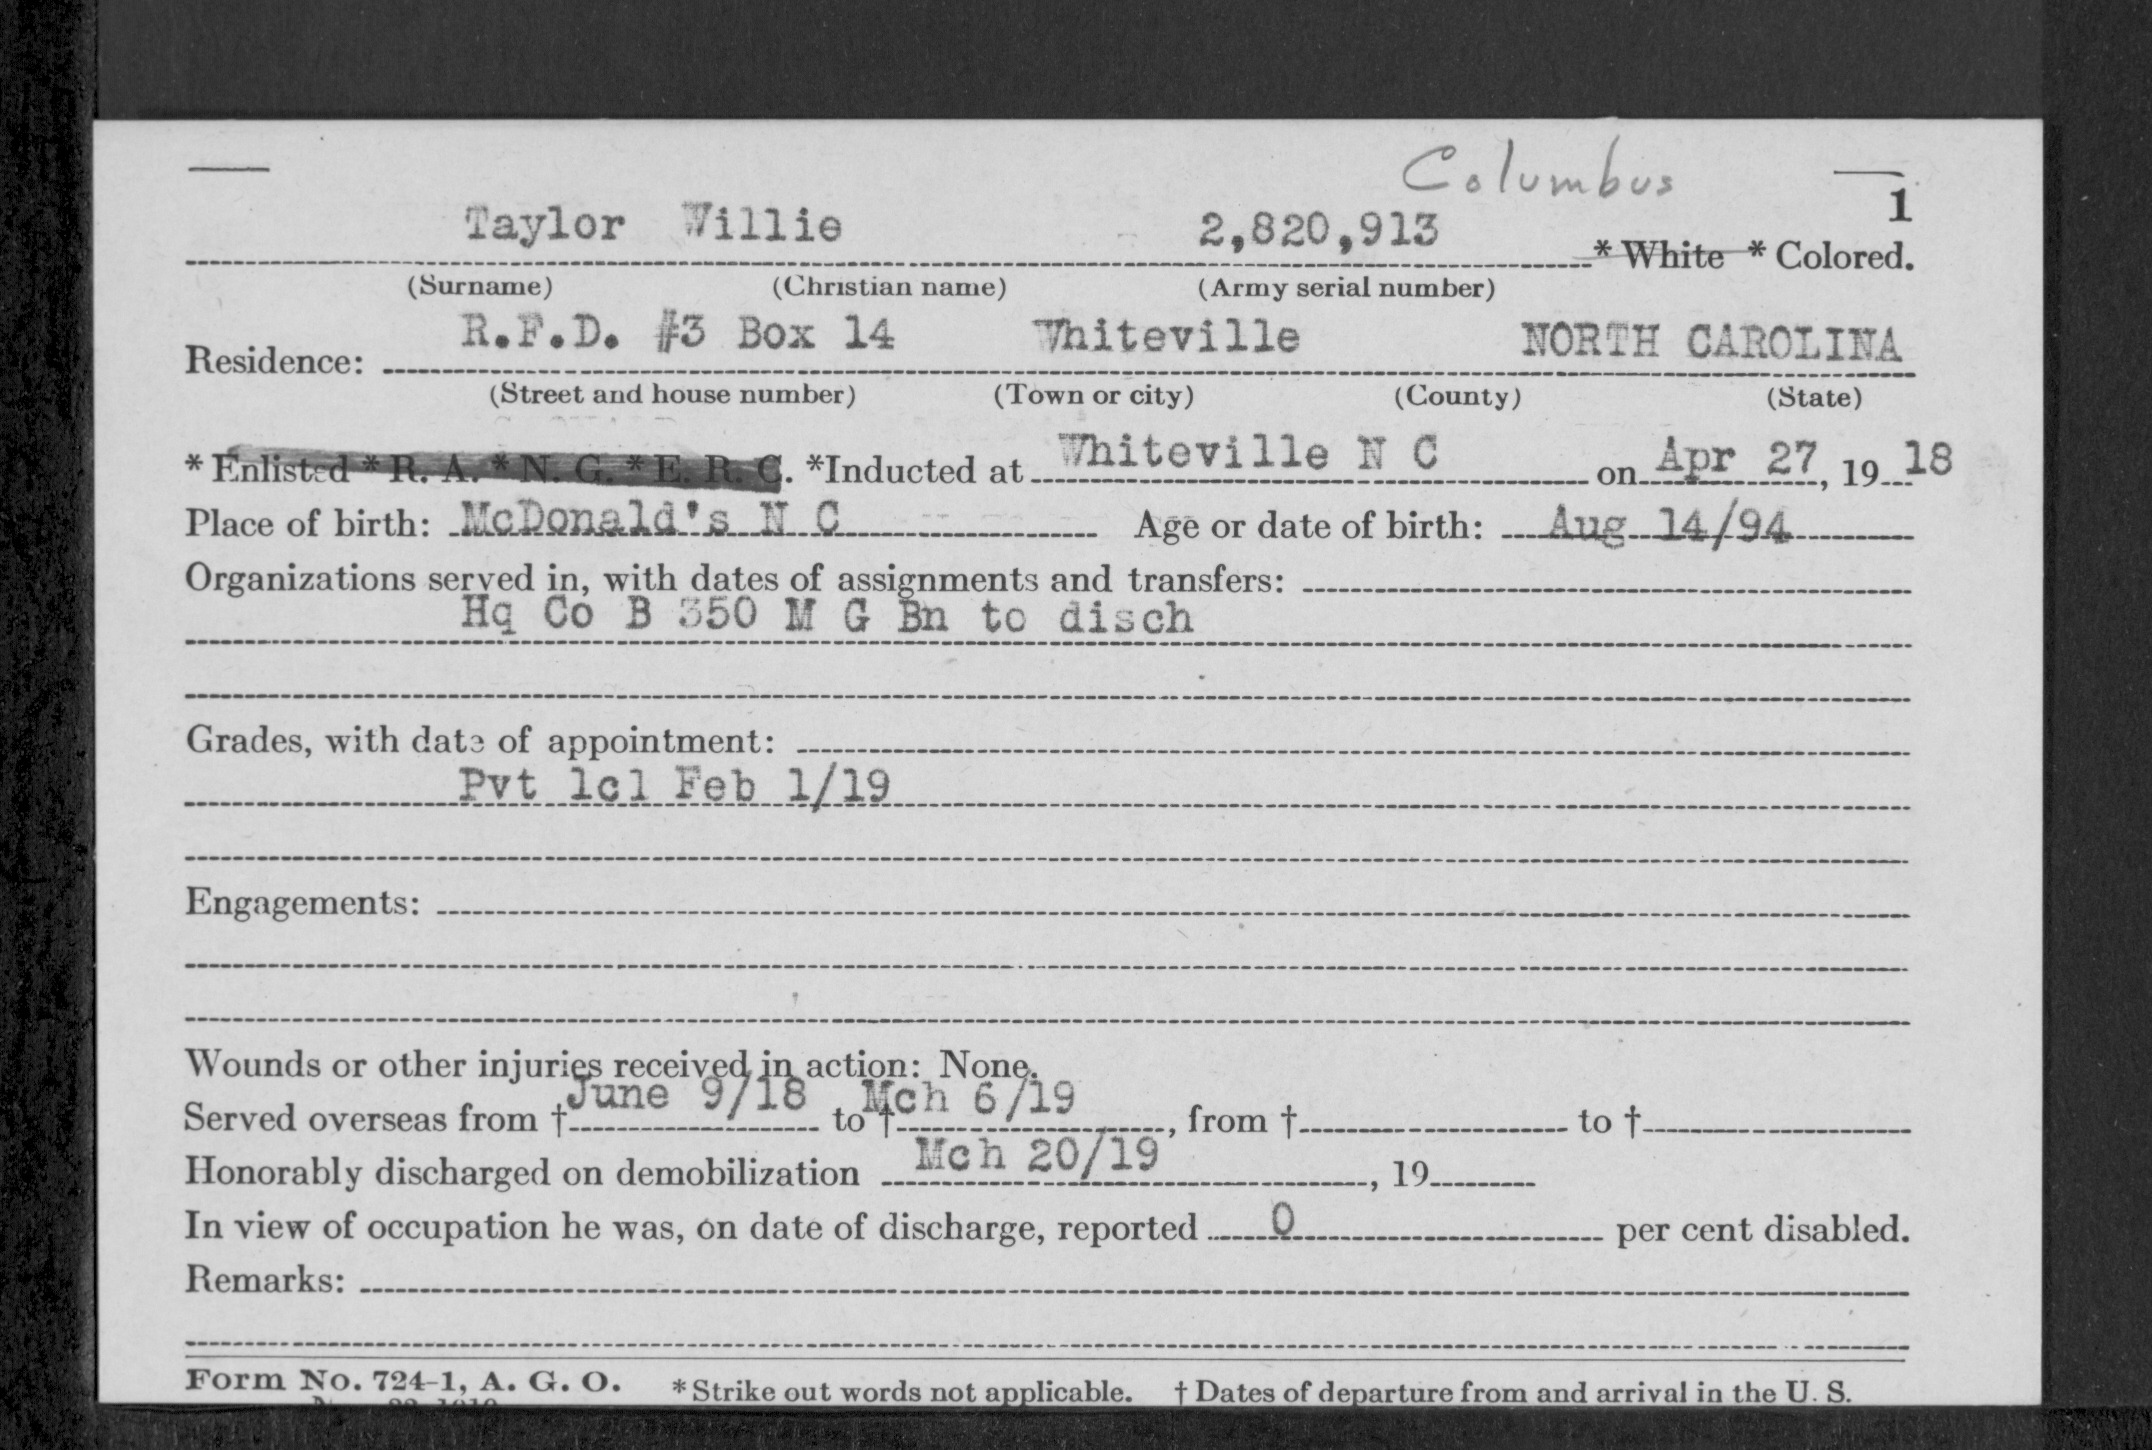 Columbus
1
Taylor Willie 2,820,913 * White * Colored.
(Surname) (Christian name) (Army serial number)
R.F.D. #3 Box 14 Whiteville NORTH CAROLINA
Residence:
(Street and house number) (Town or city) (County) (State)
* Enlisted * R. A. * N. G. * E. R. C. *Inducted at Whiteville N C on Apr 27, 19 18
Place of birth: McDonald's N C Age or date of birth: Aug 14/94
Organizations served in, with dates of assignments and transfers:
Hq Co B 350 M G Bn to disch
Grades, with date of appointment:
Pvt 1cl Feb 1/19
Engagements:
Wounds or other injuries received in action: None.
Served overseas from † June 9/18 to † Mch 6/19, from † to †
Honorably discharged on demobilization Mch 20/19, 19
In view of occupation he was, on date of discharge, reported 0 per cent disabled.
Remarks:
Form No. 724-1, A. G. O. * Strike out words not applicable. † Dates of departure from and arrival in the U. S.